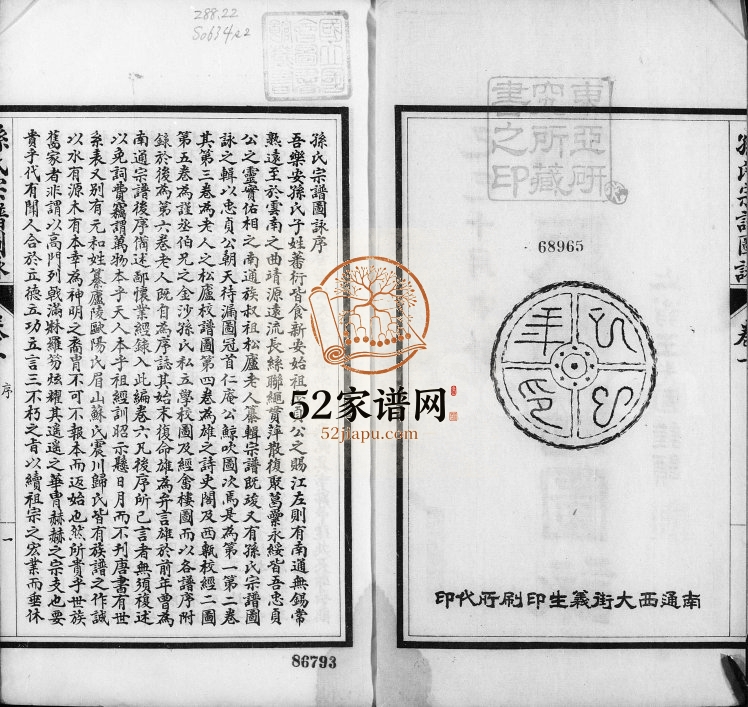 288.22
Sob34 22
國立國會圖書館藏書
東亞研究所藏書之印
68965
南通西大街義生印刷所代印
孫氏宗譜圖詠
卷一
孫氏宗譜圖詠序
吾樂安孫氏子姓蕃衍皆食新安始祖忠貞公之賜江左則有南通無錫常
熟遠至於雲南之曲靖源遠流長絲聯繩貫萍散復聚蔦蘽永綏皆吾忠貞
公之靈實佑相之南通族叔祖松廬老人纂輯宗譜既竣又有孫氏宗譜圖
詠之輯以忠貞公朝天待漏圖冠首仁庵公鯨吹圖次焉是為第一第二卷
其第三卷為老人之松廬校譜圖第四卷為雄之詩史閣及西甎校經二圖
第五卷為謹丞伯兄之金沙孫氏私立學校圖及經畬樓圖而以各譜序附
錄於後為第六卷老人既自為序誌其始末復命雄為弁言雄於前年曾為
南通宗譜後序備述鄙懷業經錄入此編卷六凡後序所已言者無須復述
以免詞費竊謂萬物本乎天人本乎祖經訓昭示懸日月而不刊唐書有世
系表又別有元和姓纂廬陵歐陽氏眉山蘇氏震川歸氏皆有族譜之作誠
以水有源木有本幸為神明之裔胄不可不報本而返始也然所貴乎世族
舊家者非謂以高門列戟滿牀羅笏炫耀其遙遙之華胄赫赫之宗支也要
貴乎代有聞人合於立德立功立言三不朽之旨以續祖宗之宏業而垂休
孫氏宗譜圖詠
卷一
序
一
86793
52家谱网
52jiapu.com